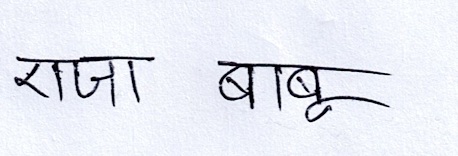 राजा बाबू